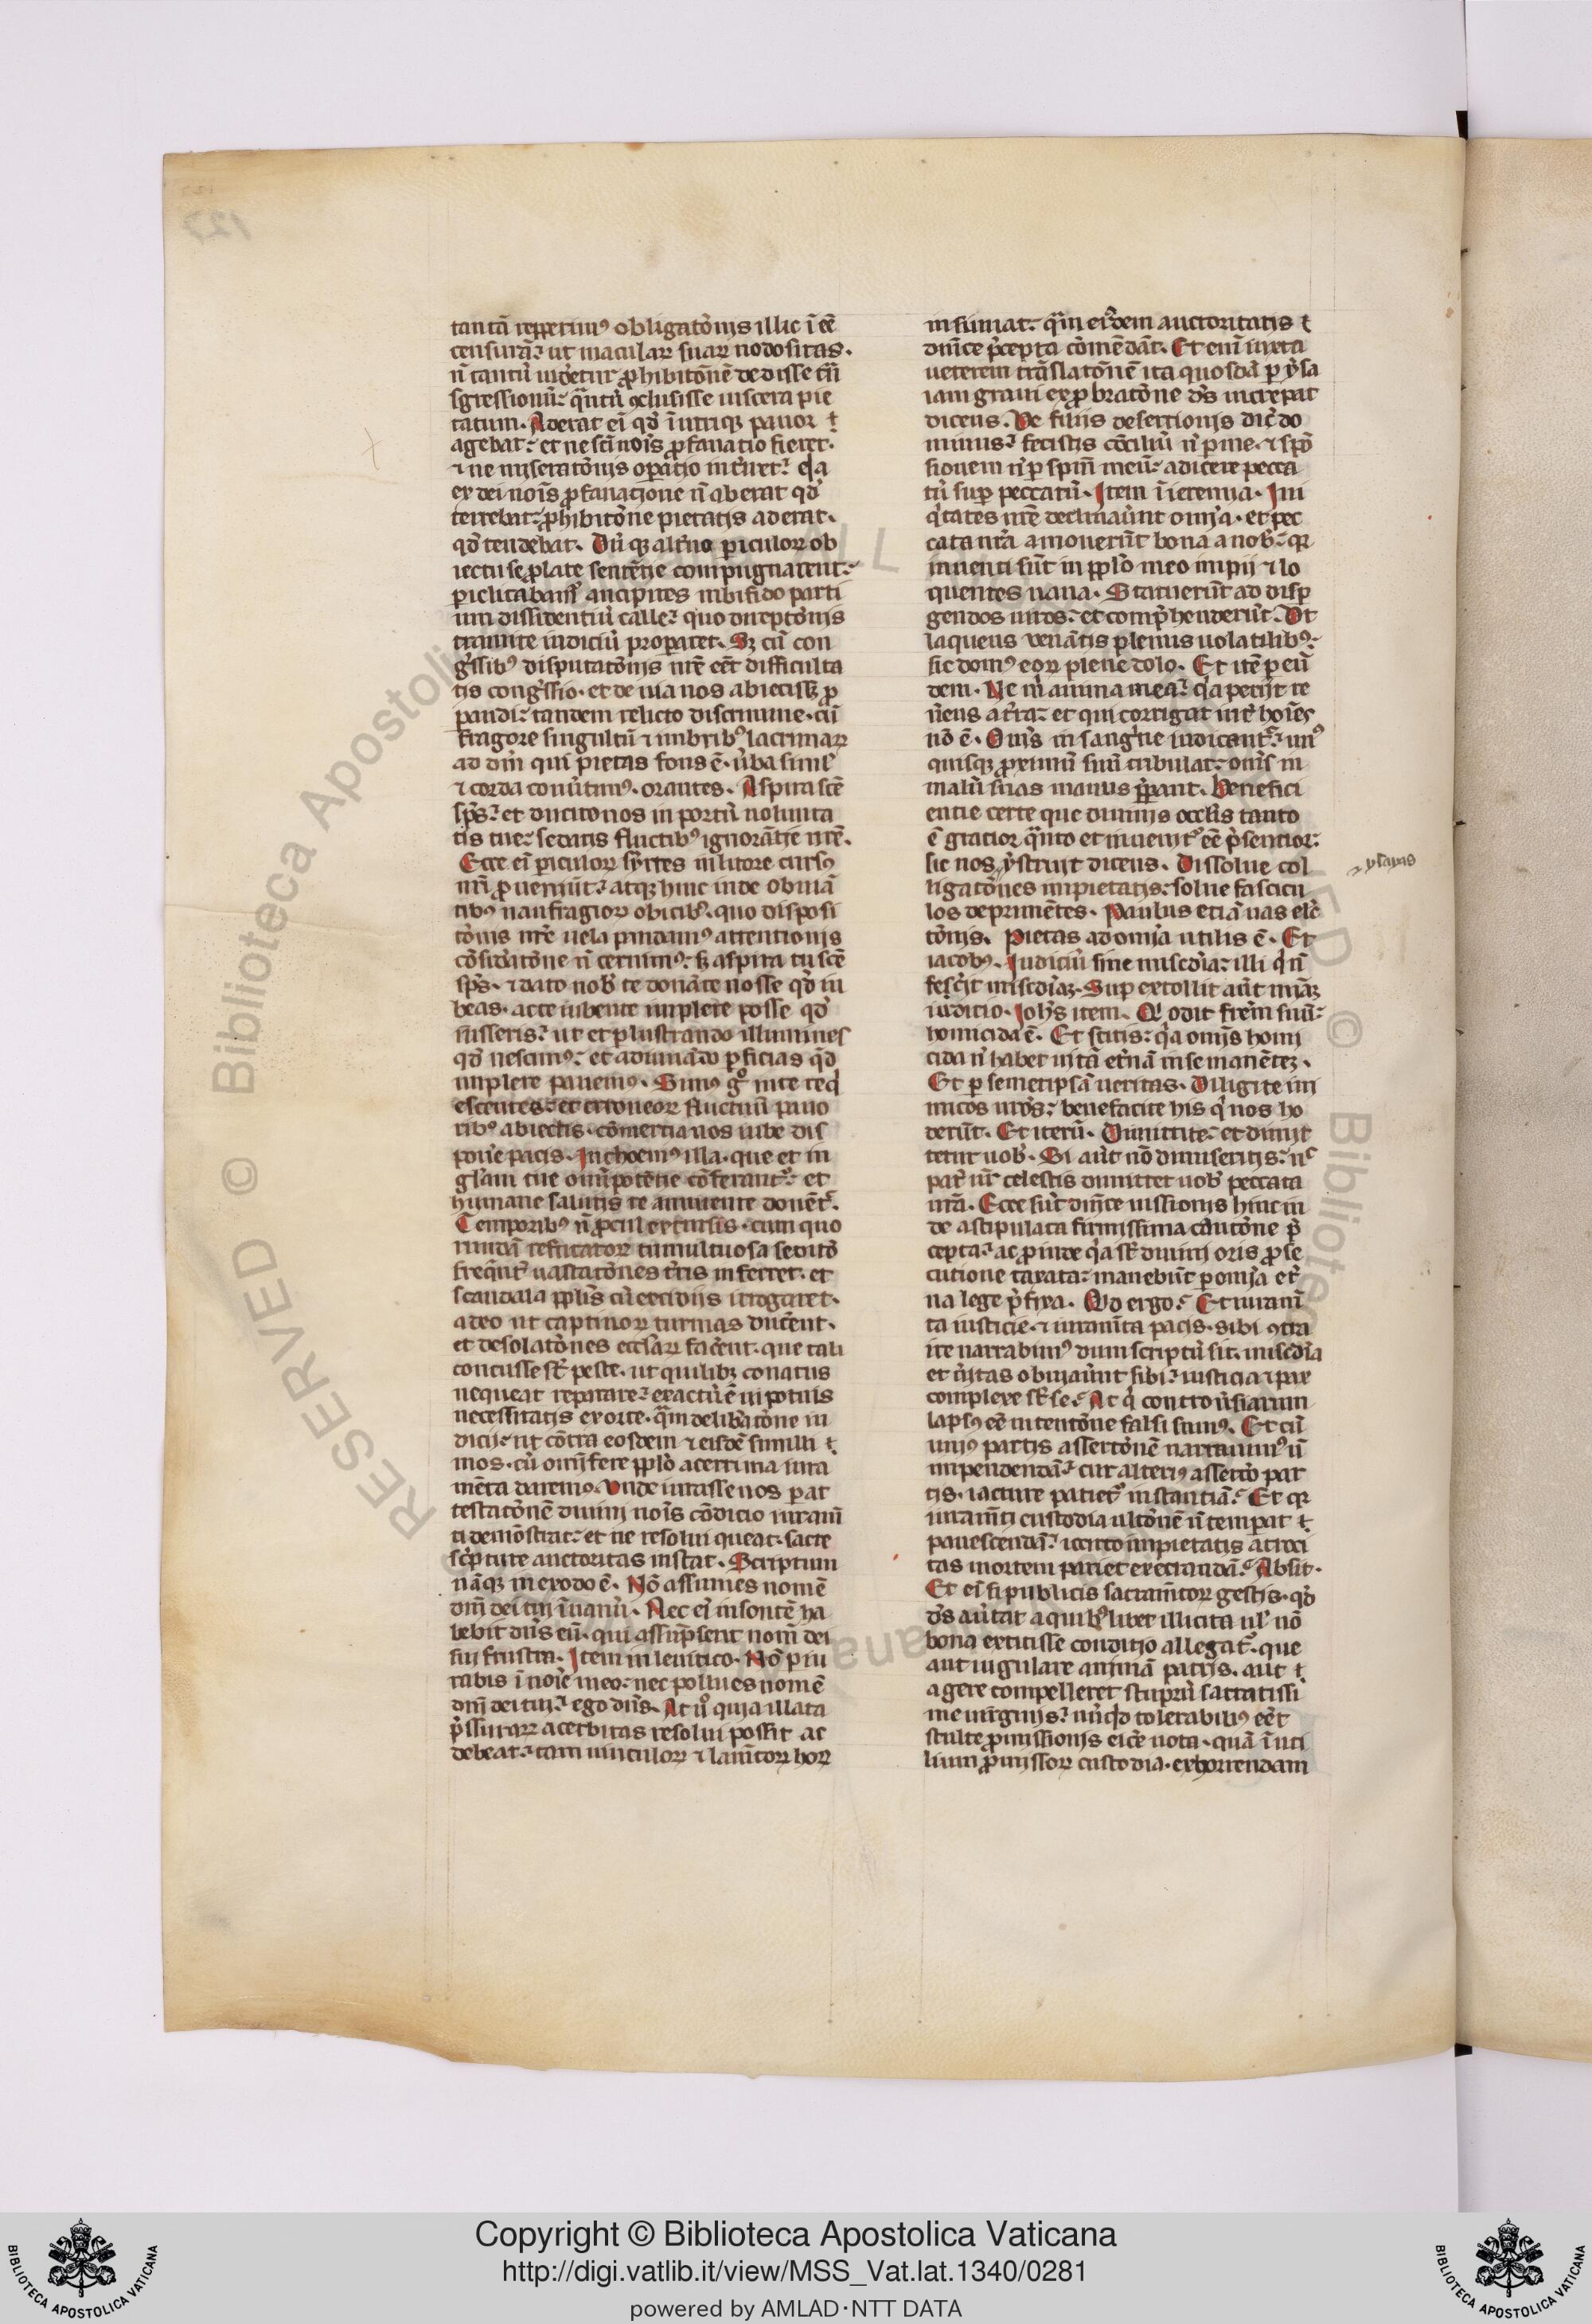 tantā repperimꝰ obligatōnis illic ī eē
censurā ut macular suar nodositas.
n̄ tantū uideretur ꝓhibitōnē dedisse
sgressionū qͣntū ꝯclusisse uiscera pie
tatum. Aderat ei qd̓ ī utriqꝫ pauor
agebat et ne sc̄i nōis ꝓfanatio fieret.
⁊ ne miseratōnis opatio
ex dei nōis ꝓfanatione n̄ aberat qd̓
terrebat ꝓhibitōne pietatis aderat.
qd̓ tendebat. Dū qꝫ alt̓no ꝑiculoꝝ ob
iectu se ꝓlate sentētie compugnarent
ꝑiclitabant᷑ ancipites in bifido parti
um dissidentiū calle quo
tramite iudiciū properaret. Sꝫ cū con
g̓ssibꝰ disputatōnis nr̄e eēt difficulta
tis cong̓ssio. et de uia nos
pandi tandem relicto discrimine. cū
fragore singultū ⁊ imbribꝰ lacrimaꝝ
ad dn̄m qui pietatis fons ē. ūba simĺ
⁊ corda conūtimꝰ. orantes. Aspira scē
sp̄s et dirito nos in portū uolunta
tis tue sedatis fluctibꝰ ignorātie nr̄e.
Ecce ei ꝑiculoꝝ syrtes in litore cursꝰ
nr̄i ꝓueniūt atqꝫ hinc inde obuiā
tibꝰ naufragioꝝ obicibꝰ. quo disposi
tōnis nr̄e uela pandamꝰ attentionis
cōsid̓atōne n̄ cernimꝰ sꝫ aspira tu scē
sp̄s. ⁊ dato nob̓ te donāte nosse qd̓ iu
beas. ac te iubente implere posse qd̓
iusseris ut et ꝑlustrando illumines
qd̓ nescimꝰ et adiuuādo ꝑficias qd̓
implere pauemꝰ. Simꝰ g̊ in te req̓
escentes et erroneoꝝ fluctuū pauo
ribꝰ abiectis. cōmertia nos iube dis
pon̓e pacis. Inchoemꝰ illa. que et in
gl̄am tue omīpotētie cōferant᷑ et
humane salutis te annuente donēt᷑.
Temporibꝰ n̄ ꝓcul excursis. cum quo
rundā refugatoꝝ tumultuosa seditō
freq̄nt̓ uastatōnes t̓ris inferret. et
scandala pplis cū excidiis irrogaret.
adeo ut captiuoꝝ turmas ducent.
et desolatōnes ecclīaꝝ facēnt. que tali
concusse sī peste. ut quilibꝫ conatus
nequeat reparare exactū ē ui potius
necessitatis exorte. qͣm delib̓atōne iu
dicii ut cōtra eosdem ⁊ eisdē simili
mos. cū omī fere pplo acerrima iura
mēta daremꝰ. Vnde iurasse nos ꝑ at
testatōnē diuini nōis cōdicio iuram̄
ti demōstrat et ne resolui queat. sacre
sc̓pture auctoritas instat. Scriptum
nāqꝫ in exodo ē. Nō assumes nomē
dn̄i dei tui ī uanū. Nec ei insontē ha
bebit dn̄s eū. qui assūpserit nom̄ dei
sui frustra. Item in leuitico. Nō ꝑiu
rabis ī nōie meo nec pollues nomē
dn̄i dei tui ego dn̄s. At ū̊ quia illata
p̄ssuraꝝ acerbitas resolui possit ac
debeat tam uinculoꝝ ⁊ lam̄toꝝ hoꝝ
insinuat qͣm eiꝰdem auctoritatis
dn̄ice p̄cepta cōmēdāt. Et eni iuxta
ueterem trāslatōnē ita quosdā ꝑ ysa
iam graui exprobratōne dꝰs increpat
dicens. Ve filiis desertionis dic̓ do
minus fecistis cōciliū n̄ ꝑ me. ⁊ spō
sionem n̄ ꝑ spm̄ meū adicere pecca
tū suꝑ peccatū. Item ī ieremia. Ini
q̓tates nr̄e declinaūnt omia. et pec
cata nr̄a amouerūt bona a nob̓ qꝛ
inuenti sūt in pplo meo impii ⁊ lo
quentes uana. Statuerūt ad disꝑ
gendos uiros et comp̄henderūt. Vt
laqueus uenātis plenus uolatilibꝰ
sic domꝰ eoꝝ plene dolo. Et itē ꝑ eū
dem. Ve m̄ anima mea q̓a periit re
u̓ens a t̓ra et qui corrigat int̓ hoīes
nō ē. Om̄s in sang̓ne iudicant᷑ unꝰ
quisqꝫ ꝓximū suū tribulat om̄s in
malū suas manus p̄ꝑant. Benefici
entie certe que diuinis oc̄l̄is tanto
ē gratior qͣnto et inuenit᷑ eē p̄sentior
sic nos ystruit dicens. Dissolue col
ysayas
ligatōnes impietatis solue fascicu
los deprimētes. Paulus etiā uas elc̄
tōnis. Pietas ad omia utilis ē. Et
iacobꝰ. Iudiciū sine misc̄dia illi q̓ n̄
fec̓it misc̄diaꝫ. Suꝑ extollit aūt mīaꝫ
iudicio. Ioh̓s item. Qi odit frēm suū
homicida ē. Et scitis q̓a omis homi
cida n̄ habet uitā et̓nā in se manētez.
Et ꝑ semetipsā ueritas. Diligite ini
micos uros benefacite his q̓ uos ho
derūt. Et iterū. Dimittite et dimit
tetur uob̓. Si aūt nō dimiseritis nͨ
pat̓ ur̄ celestis dimittet uob̓ peccata
ura. Ecce sūt dn̄ice iussionis hinc in
de astipulata firmissima cautōne p̄
cepta ac ꝓinde q̓a sī diuini oris ꝓse
cutione taxata manebūt ꝑ omia et̓
na lege p̄fixa. Qd̓ ergo. Et iuram̄
ta iusticie. ⁊ iuramēta pacis. sibi ꝯtra
ire narrabimꝰ dum scriptū sit. misc̄dia
et ūitas obuiaūnt sibi iusticia ⁊ pax
complexe sī se. At q̓ controūsiarum
lapsꝰ eē intentōne falsi sumꝰ. Et cū
uniꝰ partis assertōnē narramꝰ n̄
impendendā cur alteriꝰ assertō par
tis. iacture patiet᷑ instantiā. Et qꝛ
iuram̄ti custodia ultōnē n̄ temperat
pauescendā icciro impietatis atroci
tas mortem pariet execrandā. Absit.
Et ei si publicis sacram̄toꝝ gestis. qd̓
dꝰs aūtat a quibꝰlibet illicita ul̓ nō
bona extitisse conditio allegat᷑. que
aut iugulare animā patris. aut
agere compelleret stuprū sacratissi
me uirginis nūqd̓ tolerabiliꝰ eēt
stulte ꝓmissionis eic̄e uota. quā ī uti
lium ꝓmissoꝝ custodia. exhorrendam
Copyright © Biblioteca Apostolica Vaticana
http://digi.vatlib.it/view/MSS_Vat.lat.1340/0281
powered by AMLAD·NTT DATA